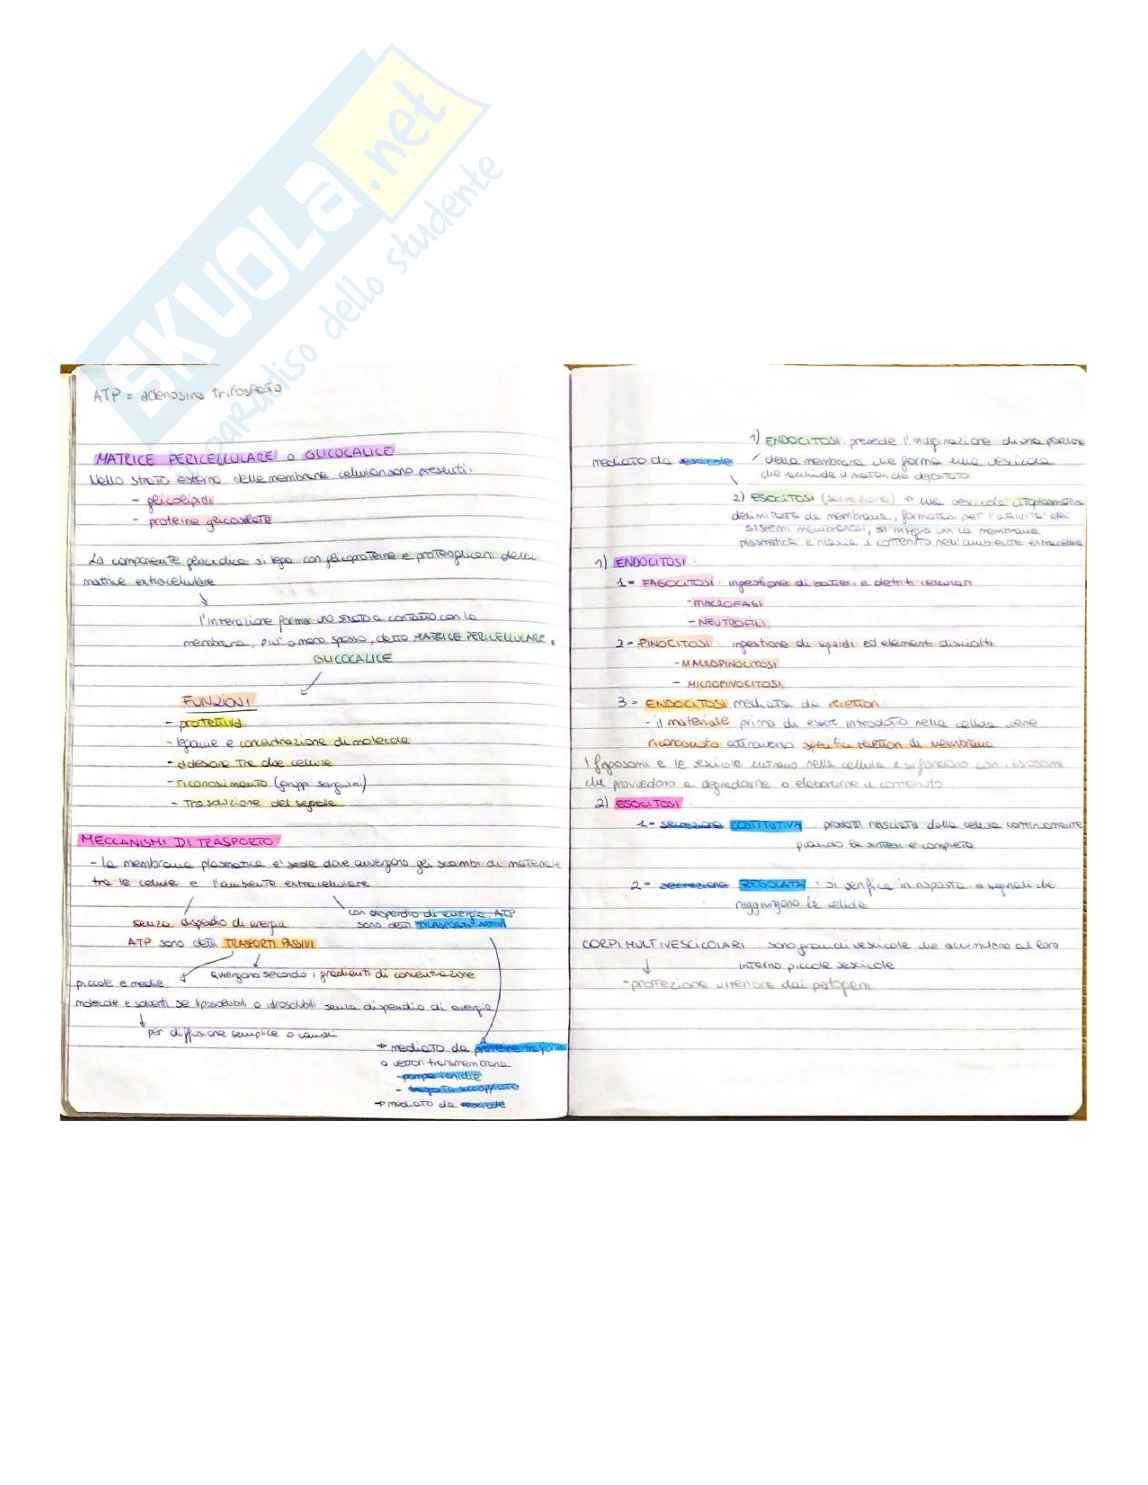 SKUOLA.net
paradiso dello studente
ATP = adenosina trifosfato
MATRICE PERICELLULARE o GLICOCALICE
Nello strato esterno delle membrane cellulari sono presenti:
- glicolipidi
- proteine glicosilate
La componente glucidica si lega con glicoproteine e proteoglicani della
matrice extracellulare
l'interazione forma uno strato a contatto con la
membrana, più o meno spesso, detto MATRICE PERICELLULARE o
GLICOCALICE
FUNZIONI
- protettiva
- legame e concentrazione di molecole
- adesione tra due cellule
- riconoscimento (gruppi sanguigni)
- trasduzione del segnale
MECCANISMI DI TRASPORTO
- la membrana plasmatica è sede dove avvengono gli scambi di materiale
tra le cellule e l'ambiente extracellulare
senza dispendio di energia
ATP sono detti TRASPORTI PASSIVI
con dispendio di energia ATP
sono detti TRASPORTI ATTIVI
avvengono secondo i gradienti di concentrazione
piccole e medie
molecole e soluti se liposolubili o idrosolubili senza dispendio di energia
per diffusione semplice o canali
→ mediato da proteine
o vettori transmembrana
- pompe ioniche
- trasporto accoppiato
→ mediato da vescicole
mediato da vescicole
1) ENDOCITOSI: prevede l'invaginazione di una porzione
della membrana che forma una vescicola
che racchiude il materiale
2) ESOCITOSI (secrezione) una vescicola citoplasmatica
delimitata da membrana, formatasi per l'attività dei
sistemi membranosi, si integra con la membrana
plasmatica e rilascia il contenuto nell'ambiente extracellulare
1) ENDOCITOSI:
1- FAGOCITOSI: ingestione di batteri e detriti cellulari
- MACROFAGI
- NEUTROFILI
2- PINOCITOSI: ingestione di liquidi ed elementi disciolti
- MACROPINOCITOSI
- MICROPINOCITOSI
3- ENDOCITOSI mediata da recettori
- il materiale prima di essere introdotto nella cellula viene
riconosciuto attraverso specifici recettori di membrana
I fagosomi e le vescicole entrano nella cellula e si fondono con i lisosomi
che provvedono a degradarne o elaborarne il contenuto
2) ESOCITOSI
1- secrezione COSTITUTIVA: prodotti rilasciati dalla cellula continuamente
quando la sintesi è completa
2- secrezione REGOLATA: si verifica in risposta a segnali che
raggiungono la cellula
CORPI MULTIVESCICOLARI: sono grandi vescicole che accumulano al loro
interno piccole vescicole
- protezione ulteriore dai patogeni